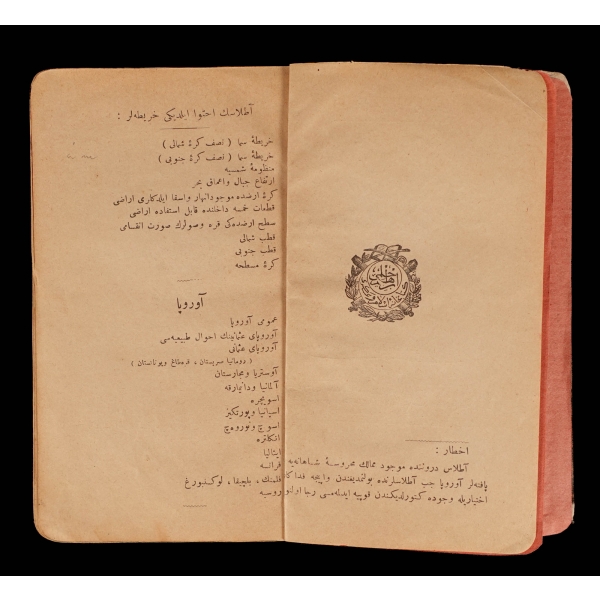 اخطار :
آطلاس دروننده موجود ممالك محروسهٔ شاهانه‌يه
يافته‌لر آوروپا جب آطلاسلرنده بولنمديغندن واپيجه فداكا
اختياريله وجوده كتورلديكندن قوپيه ايدلمه‌مسى رجا اولنور
آطلاسك احتوا ايلديكى خريطه‌لر :
خريطهٔ سما ( نصف كرهٔ شمالى )
خريطهٔ سما ( نصف كرهٔ جنوبى )
منظومهٔ شمسيه
ارتفاع جبال واعماق بحر
كرهٔ ارضده موجود انهار واسقا ايلدكلرى اراضى
قطعات خمسه داخلنده قابل استفاده اراضى
سطح ارضده‌كى قره وصولرك صورت انقسامى
قطب شمالى
قطب جنوبى
كرهٔ مسطحه
آوروپا
عمومى آوروپا
آوروپاى عثمانينك احوال طبيعيه‌سى
آوروپاى عثمانى
( رومانيا صربستان ، قره‌طاغ ويونانستان )
آوستريا ومجارستان
آلمانيا ودانيمارقه
اسويچره
اسپانيا وپورتكيز
اسوچ ونوروه‌چ
انكلتره
ايتاليا
فرانسه
فلمنك ، بلچيقا ، لوكسنبورغ
روسيه